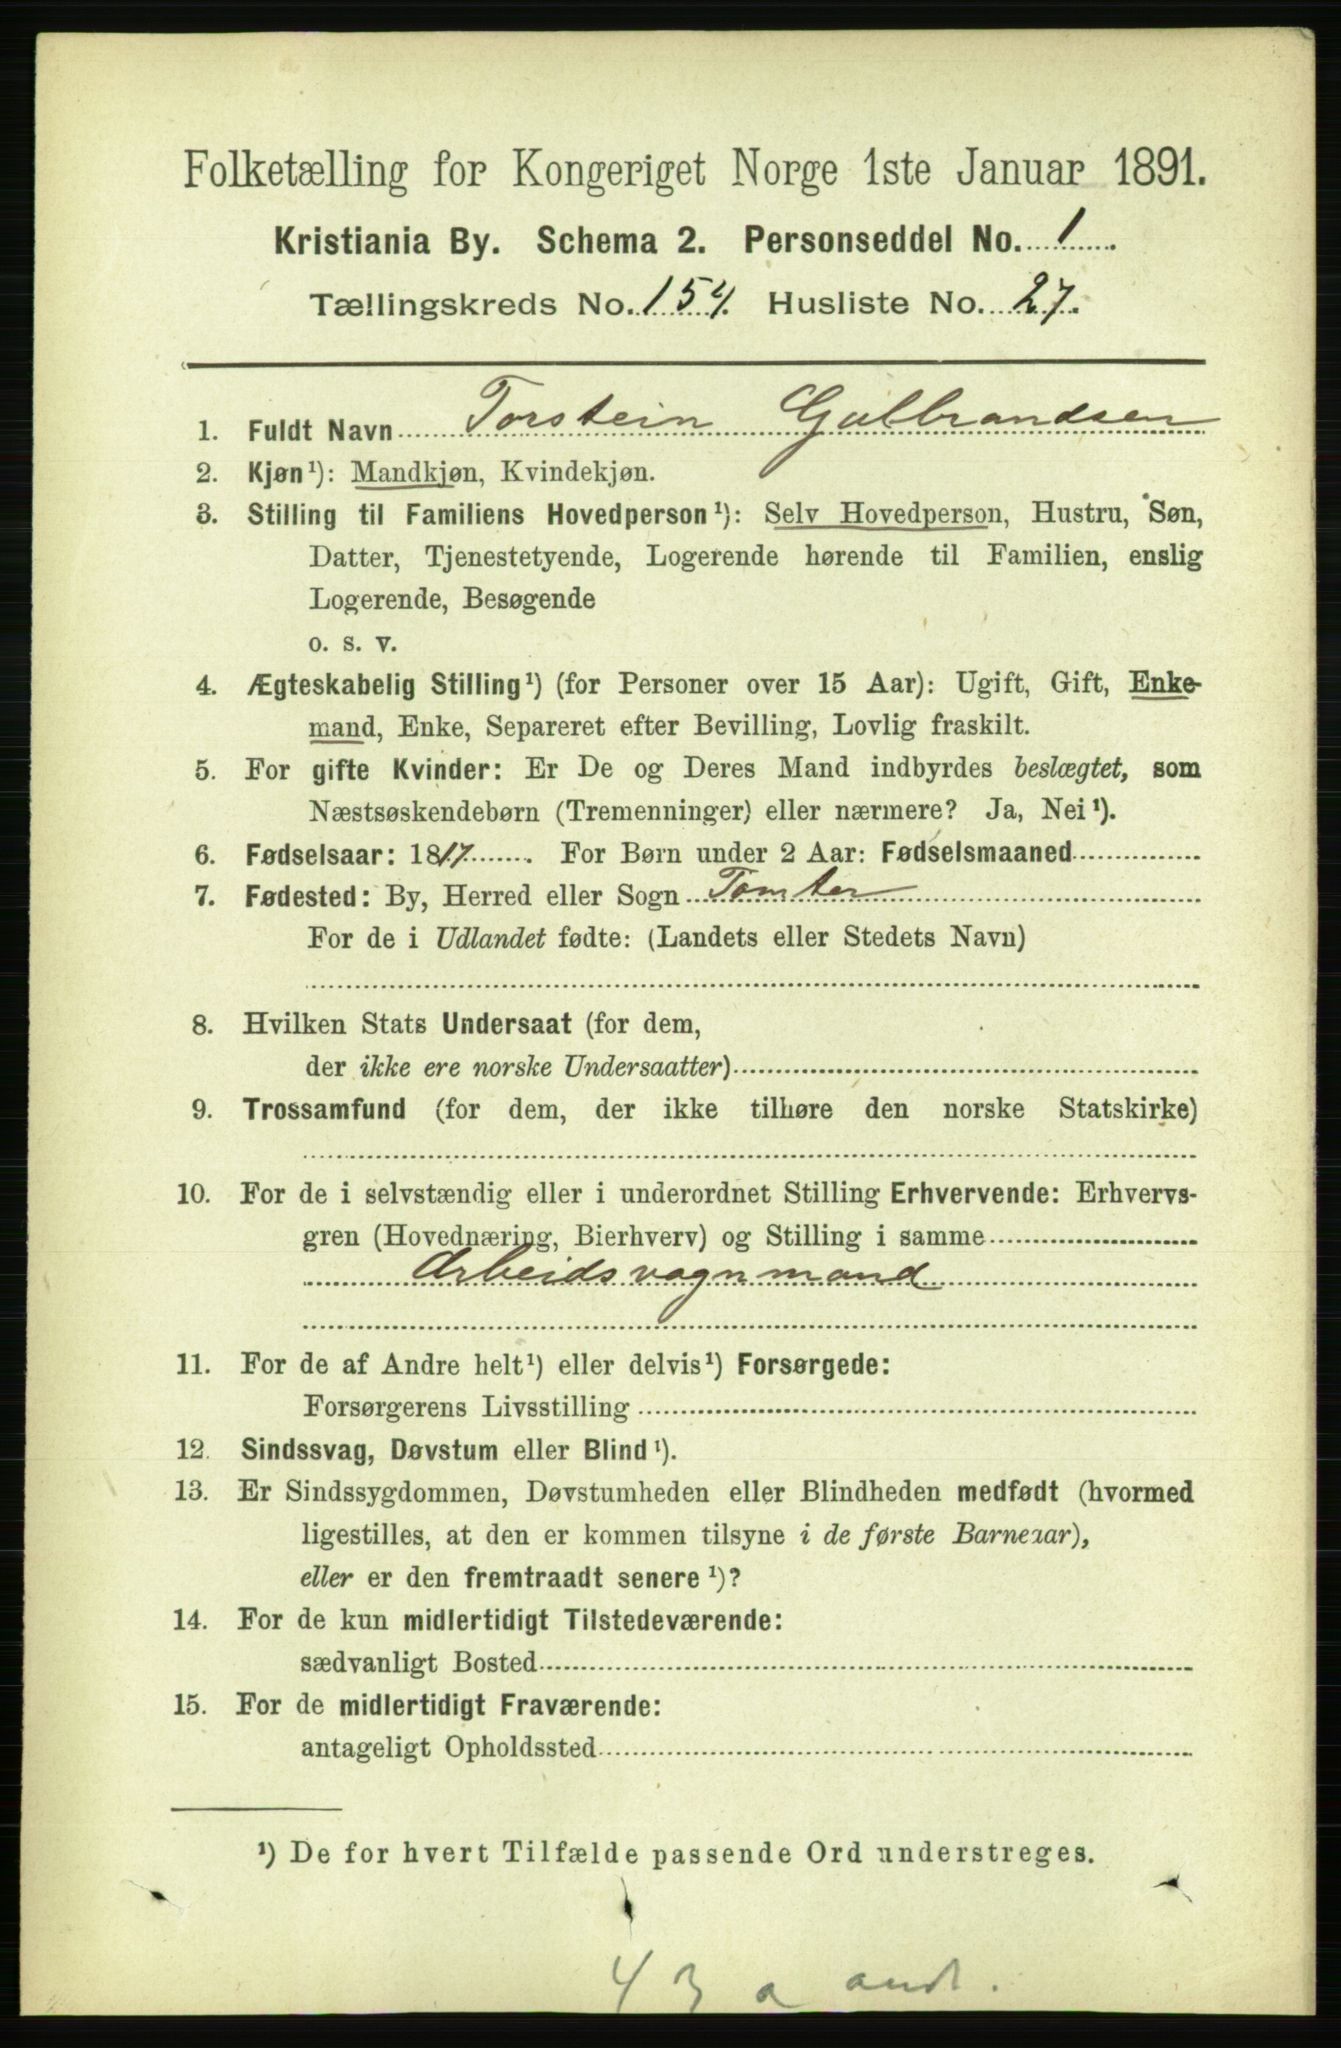 Folketælling for Kongeriget Norge 1ste Januar 1891.
Kristiania By. Schema 2. Personseddel No. 1
Tællingskreds No. 154. Husliste No. 27.
1. Fuldt Navn Torstein Gulbrandsen
2. Kjøn¹): Mandkjøn, Kvindekjøn.
3. Stilling til Familiens Hovedperson¹): Selv Hovedperson, Hustru, Søn,
Datter, Tjenestetyende, Logerende hørende til Familien, enslig
Logerende, Besøgende
o. s. v.
4. Ægteskabelig Stilling¹) (for Personer over 15 Aar): Ugift, Gift, Enke-
mand, Enke, Separeret efter Bevilling, Lovlig fraskilt.
5. For gifte Kvinder: Er De og Deres Mand indbyrdes beslægtet, som
Næstsøskendebørn (Tremenninger) eller nærmere? Ja, Nei¹).
6. Fødselsaar: 1817. For Børn under 2 Aar: Fødselsmaaned
7. Fødested: By, Herred eller Sogn Tomter
For de i Udlandet fødte: (Landets eller Stedets Navn)
8. Hvilken Stats Undersaat (for dem,
der ikke ere norske Undersaatter)
9. Trossamfund (for dem, der ikke tilhøre den norske Statskirke)
10. For de i selvstændig eller i underordnet Stilling Erhvervende: Erhvervs-
gren (Hovednæring, Bierhverv) og Stilling i samme
Arbeidsvognmand
11. For de af Andre helt¹) eller delvis¹) Forsørgede:
Forsørgerens Livsstilling
12. Sindssvag, Døvstum eller Blind¹).
13. Er Sindssygdommen, Døvstumheden eller Blindheden medfødt (hvormed
ligestilles, at den er kommen tilsyne i de første Barneaar),
eller er den fremtraadt senere¹)?
14. For de kun midlertidigt Tilstedeværende:
sædvanligt Bosted
15. For de midlertidigt Fraværende:
antageligt Opholdssted
¹) De for hvert Tilfælde passende Ord understreges.
43 a